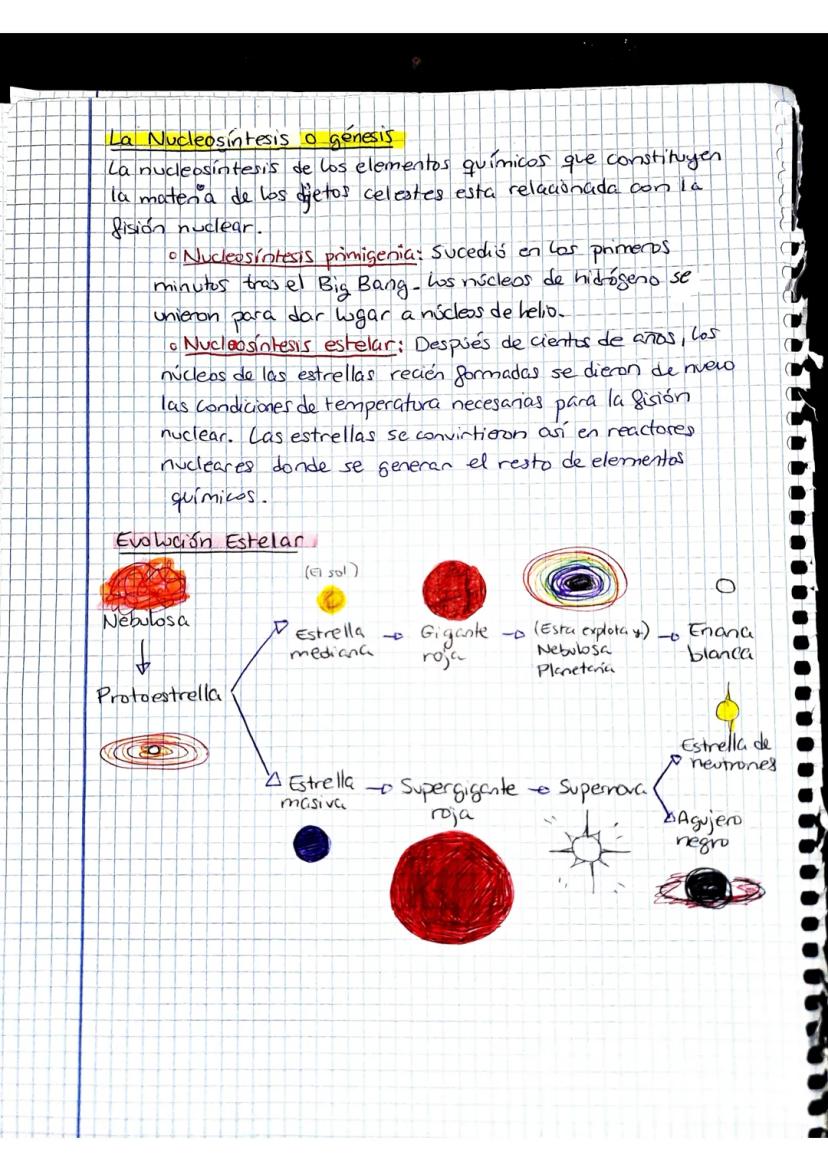 La Nucleosíntesis o génesis
La nucleosíntesis de los elementos químicos que constituyen
la materia de los objetos celestes esta relacionada con la
fisión nuclear.
◦ Nucleosíntesis primigenia: Sucedió en los primeros
minutos tras el Big Bang. Los núcleos de hidrógeno se
unieron para dar lugar a núcleos de helio.
◦ Nucleosíntesis estelar: Después de cientos de años, los
núcleos de las estrellas recién formadas se dieron de nuevo
las condiciones de temperatura necesarias para la fisión
nuclear. Las estrellas se convirtieron así en reactores
nucleares donde se generan el resto de elementos
químicos.
Evolución Estelar
Nebulosa
Protoestrella
(El sol)
Estrella
mediana
Gigante
roja
(Esta explota y)
Nebulosa
Planetaria
Enana
blanca
Estrella
masiva
Supergigante
roja
Supernova
Estrella de
neutrones
Agujero
negro